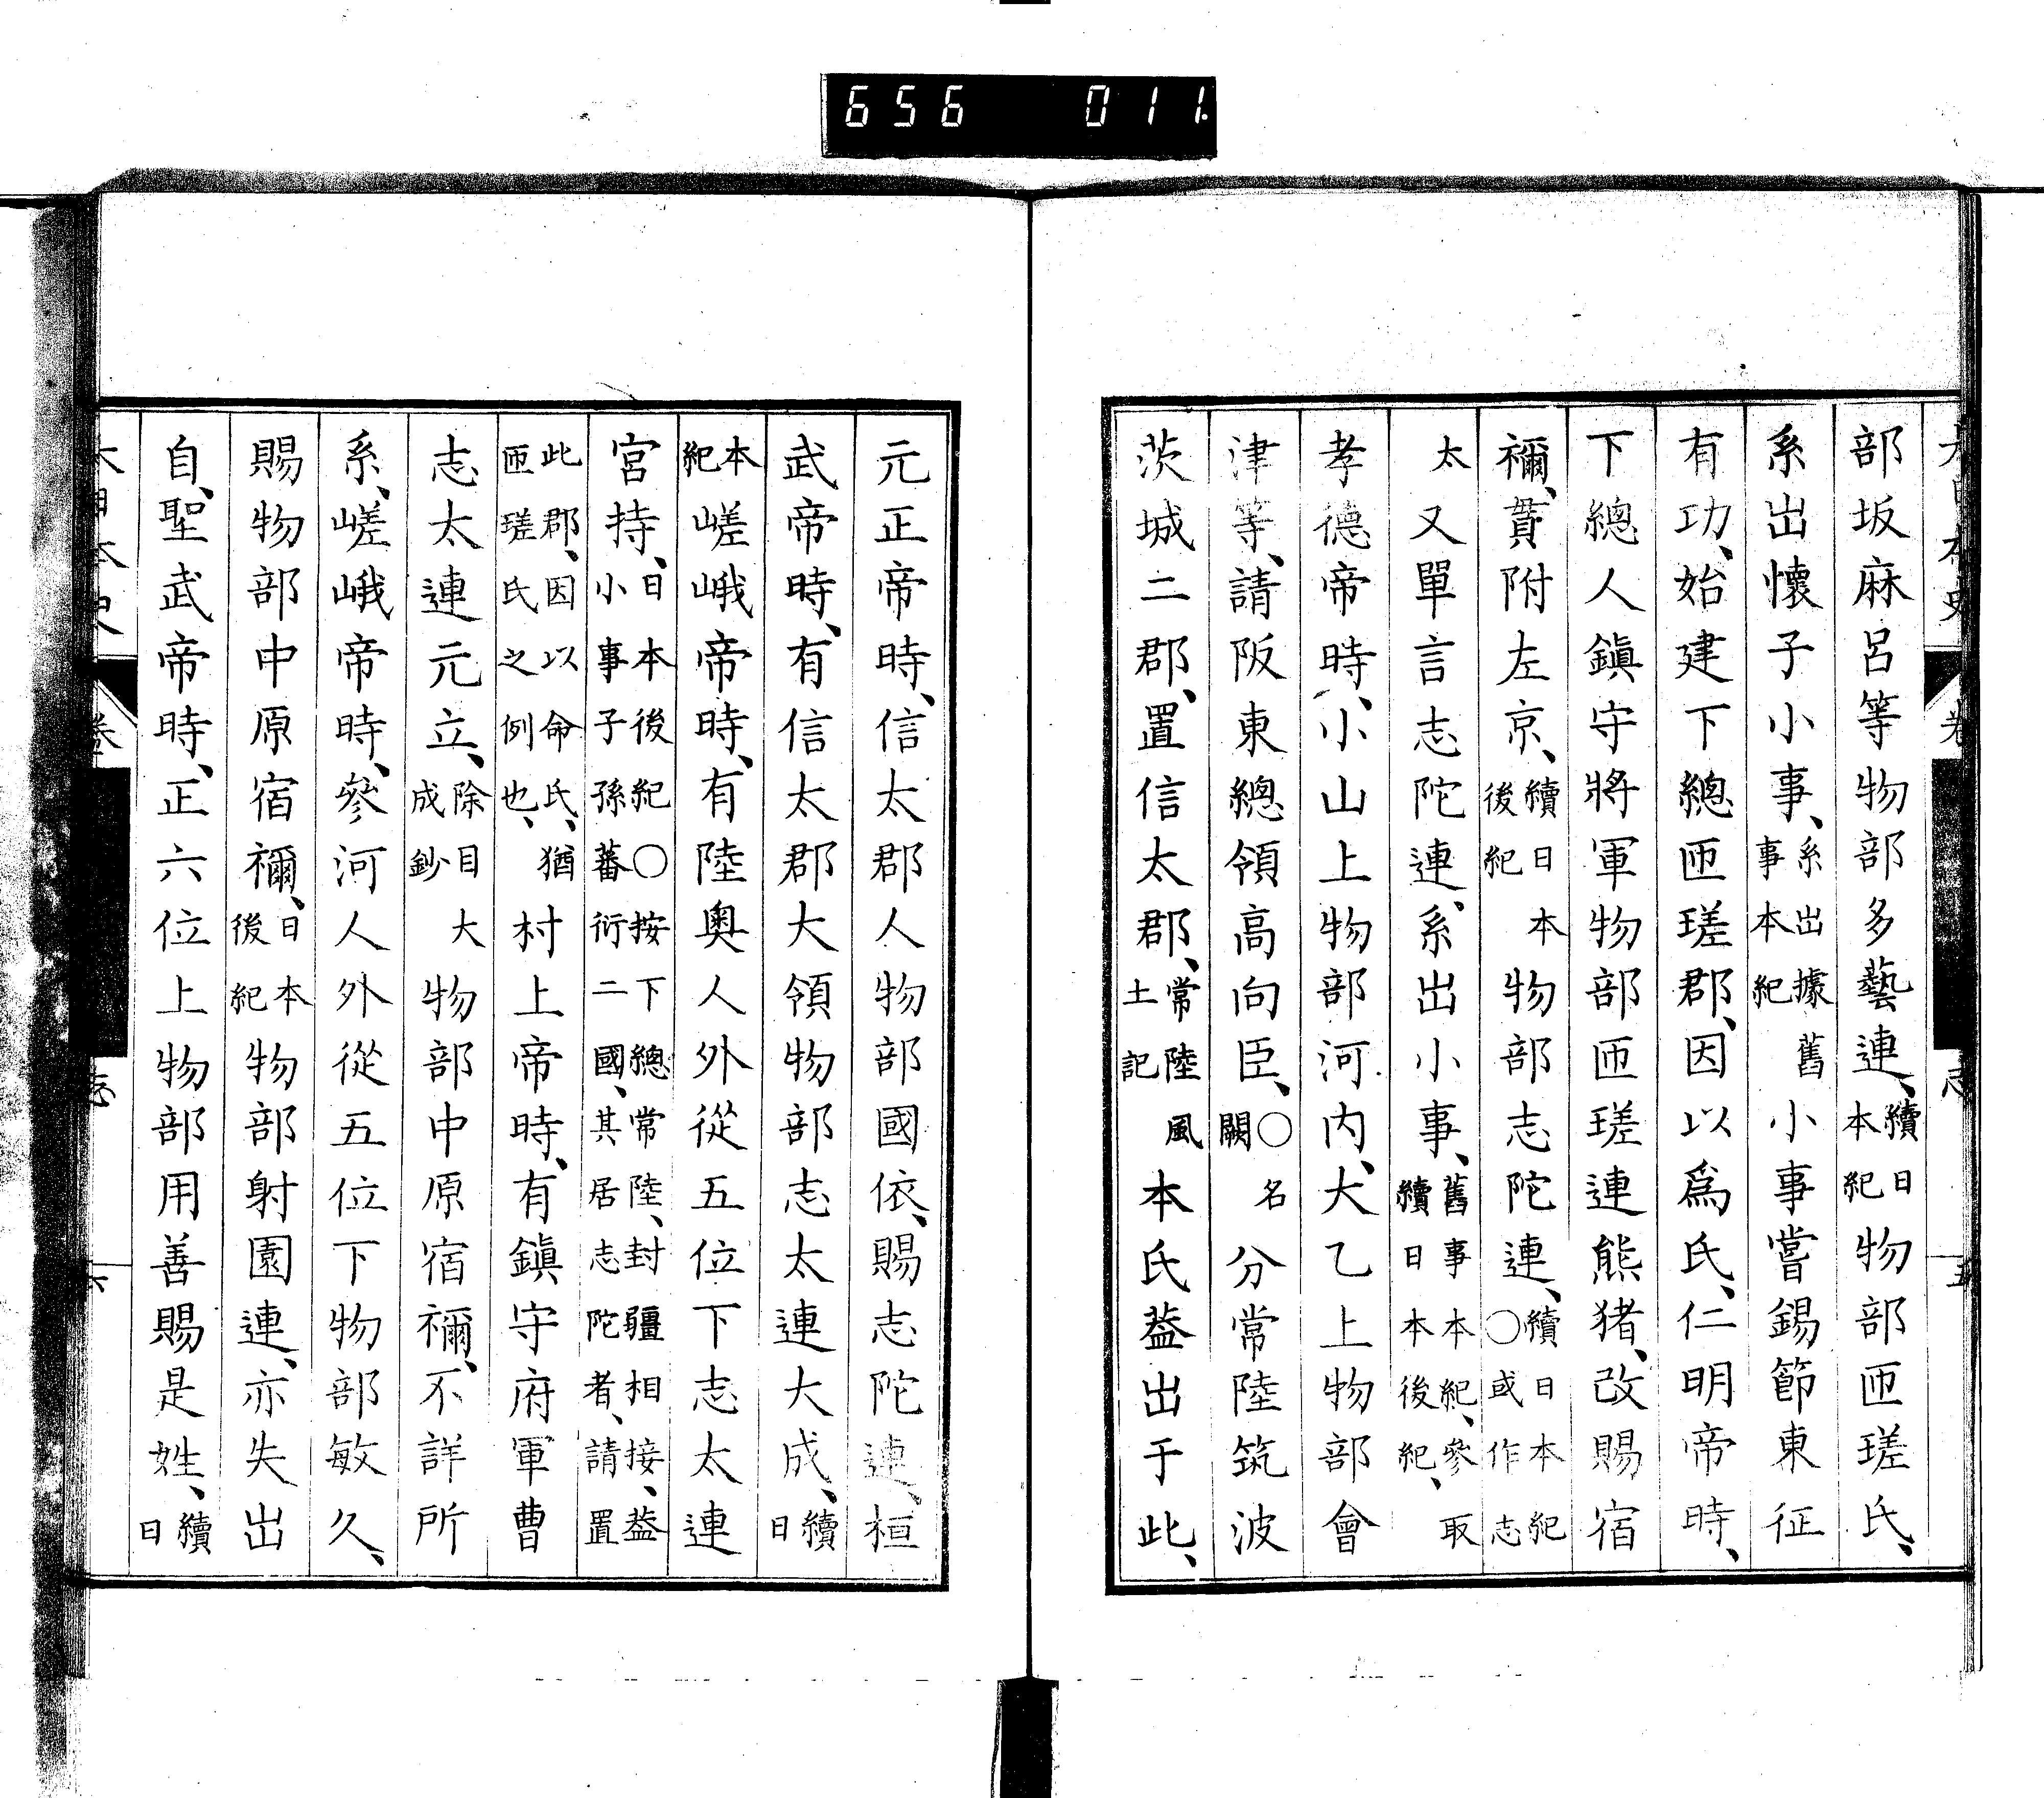 656 011.
大日本史 卷 志 五
部坂麻呂等物部多藝連、續日本紀物部匝瑳氏、
系出懷子小事、系出據舊事本紀小事嘗錫節東征
有功、始建下總匝瑳郡、因以爲氏、仁明帝時、
下總人鎭守將軍物部匝瑳連熊猪、改賜宿
禰、貫附左京、續日本後紀物部志陀連、續日本紀〇或作志
太又單言志陀連、系出小事、舊事本紀、參取續日本後紀、
孝德帝時、小山上物部河內、大乙上物部會
津等、請阪東總領高向臣、〇名闕分常陸筑波
茨城二郡、置信太郡、常陸風土記本氏蓋出于此、
元正帝時、信太郡人物部國依、賜志陀連、桓
武帝時、有信太郡大領物部志太連大成、續日
本紀嵯峨帝時、有陸奧人外從五位下志太連
宮持、日本後紀〇按下總常陸、封疆相接、蓋小事子孫蕃衍二國、其居志陀者、請置
此郡、因以命氏、猶匝瑳氏之例也、村上帝時、有鎭守府軍曹
志太連元立、除目大成鈔物部中原宿禰、不詳所
系、嵯峨帝時、參河人外從五位下物部敏久、
賜物部中原宿禰、日本後紀物部射園連、亦失出
自、聖武帝時、正六位上物部用善賜是姓、續日
大日本史 卷 志 六